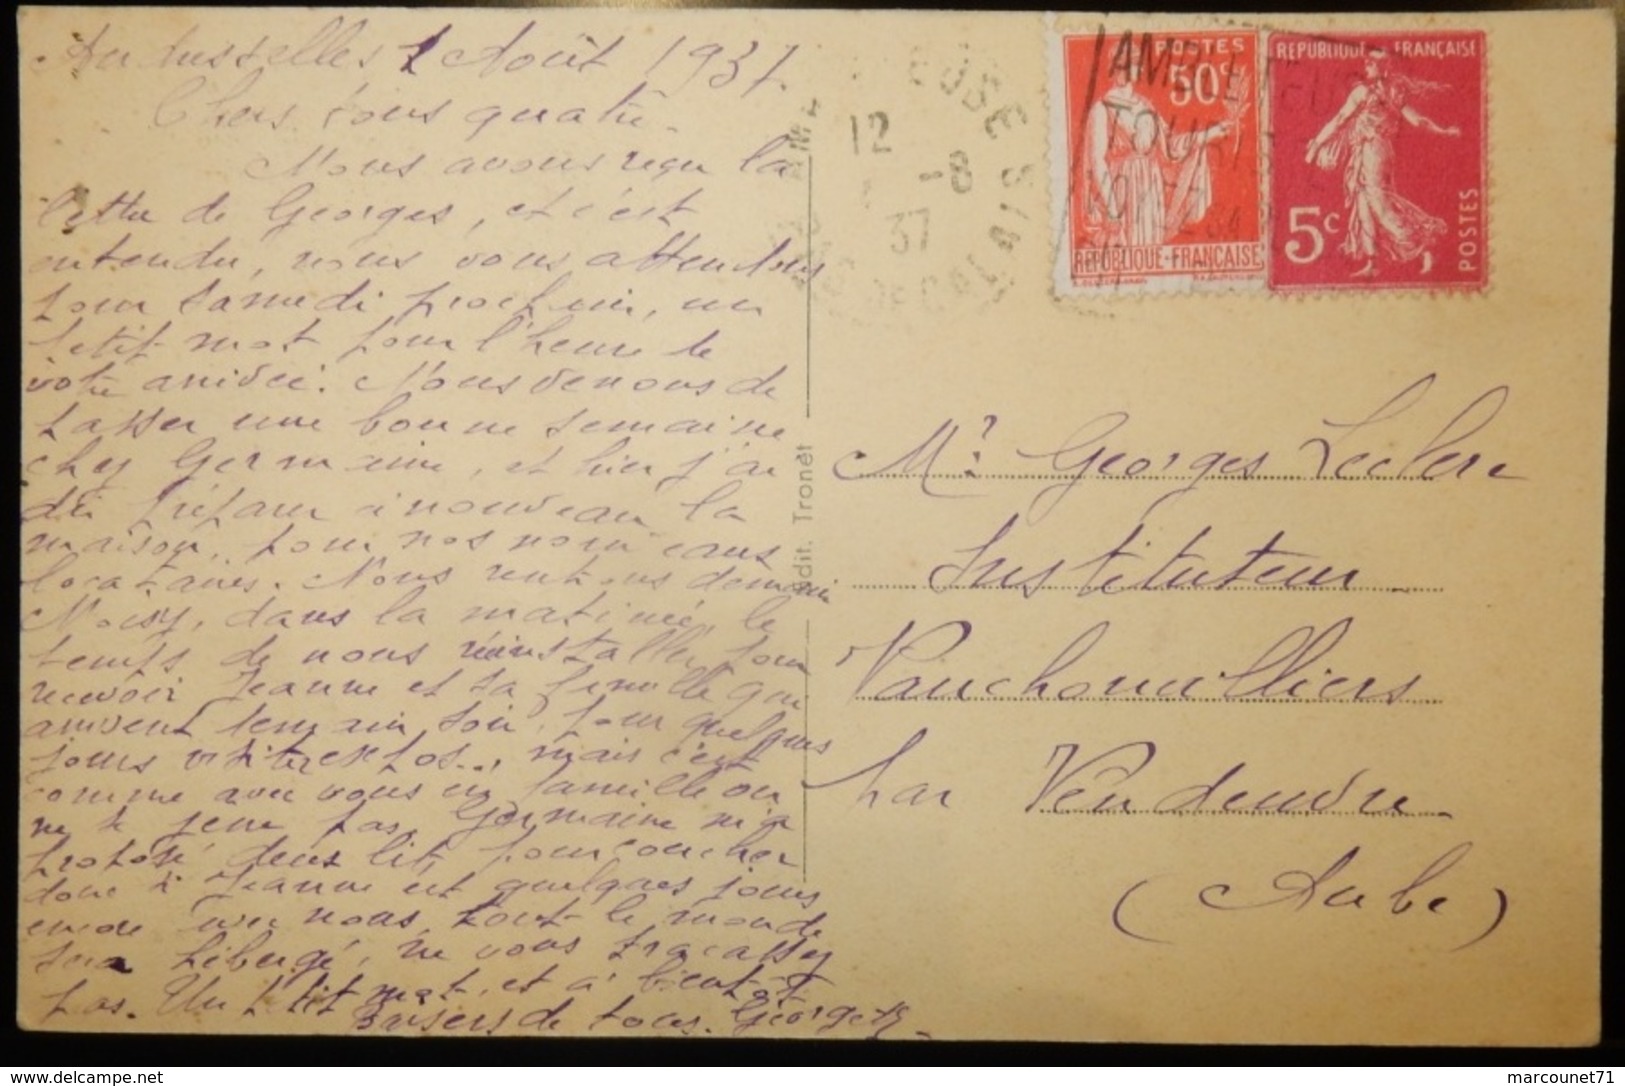 Audresselles 1 Août 1937.
Chers tous quatre.
Nous avons reçu la
lettre de Georges, et c'est
entendu, nous vous attendons
pour samedi prochain, un
petit mot pour l'heure de
votre arrivée. Nous venons de
passer une bonne semaine
chez Germaine, et hier j'ai
dû préparer à nouveau la
maison, pour nos nouveaux
locataires. Nous rentrons demain
Noisy, dans la matinée, le
temps de nous réinstaller pour
recevoir Jeanne et sa famille qui
arrivent demain soir, pour quelques
jours visiter expos..., mais c'est
comme avec vous en famille on
ne se gène pas. Germaine m'a
proposé deux lits pour coucher
donc si Jeanne est quelques jours
encore avec nous, tout le monde
sera hébergé, ne vous tracassez
pas. Un petit mot, et à bientôt
Baisers de tous. Georgette
Edit. Tronet
12 -8
37
PAS DE CALAIS
POSTES
50c
REPUBLIQUE-FRANÇAISE
REPUBLIQUE FRANÇAISE
5c
POSTES
AMBLETEUSE
Mr Georges Leclerc
Instituteur
Vauchonvilliers
par Vendeuvre
(Aube)
delcampe.net
marcounet71